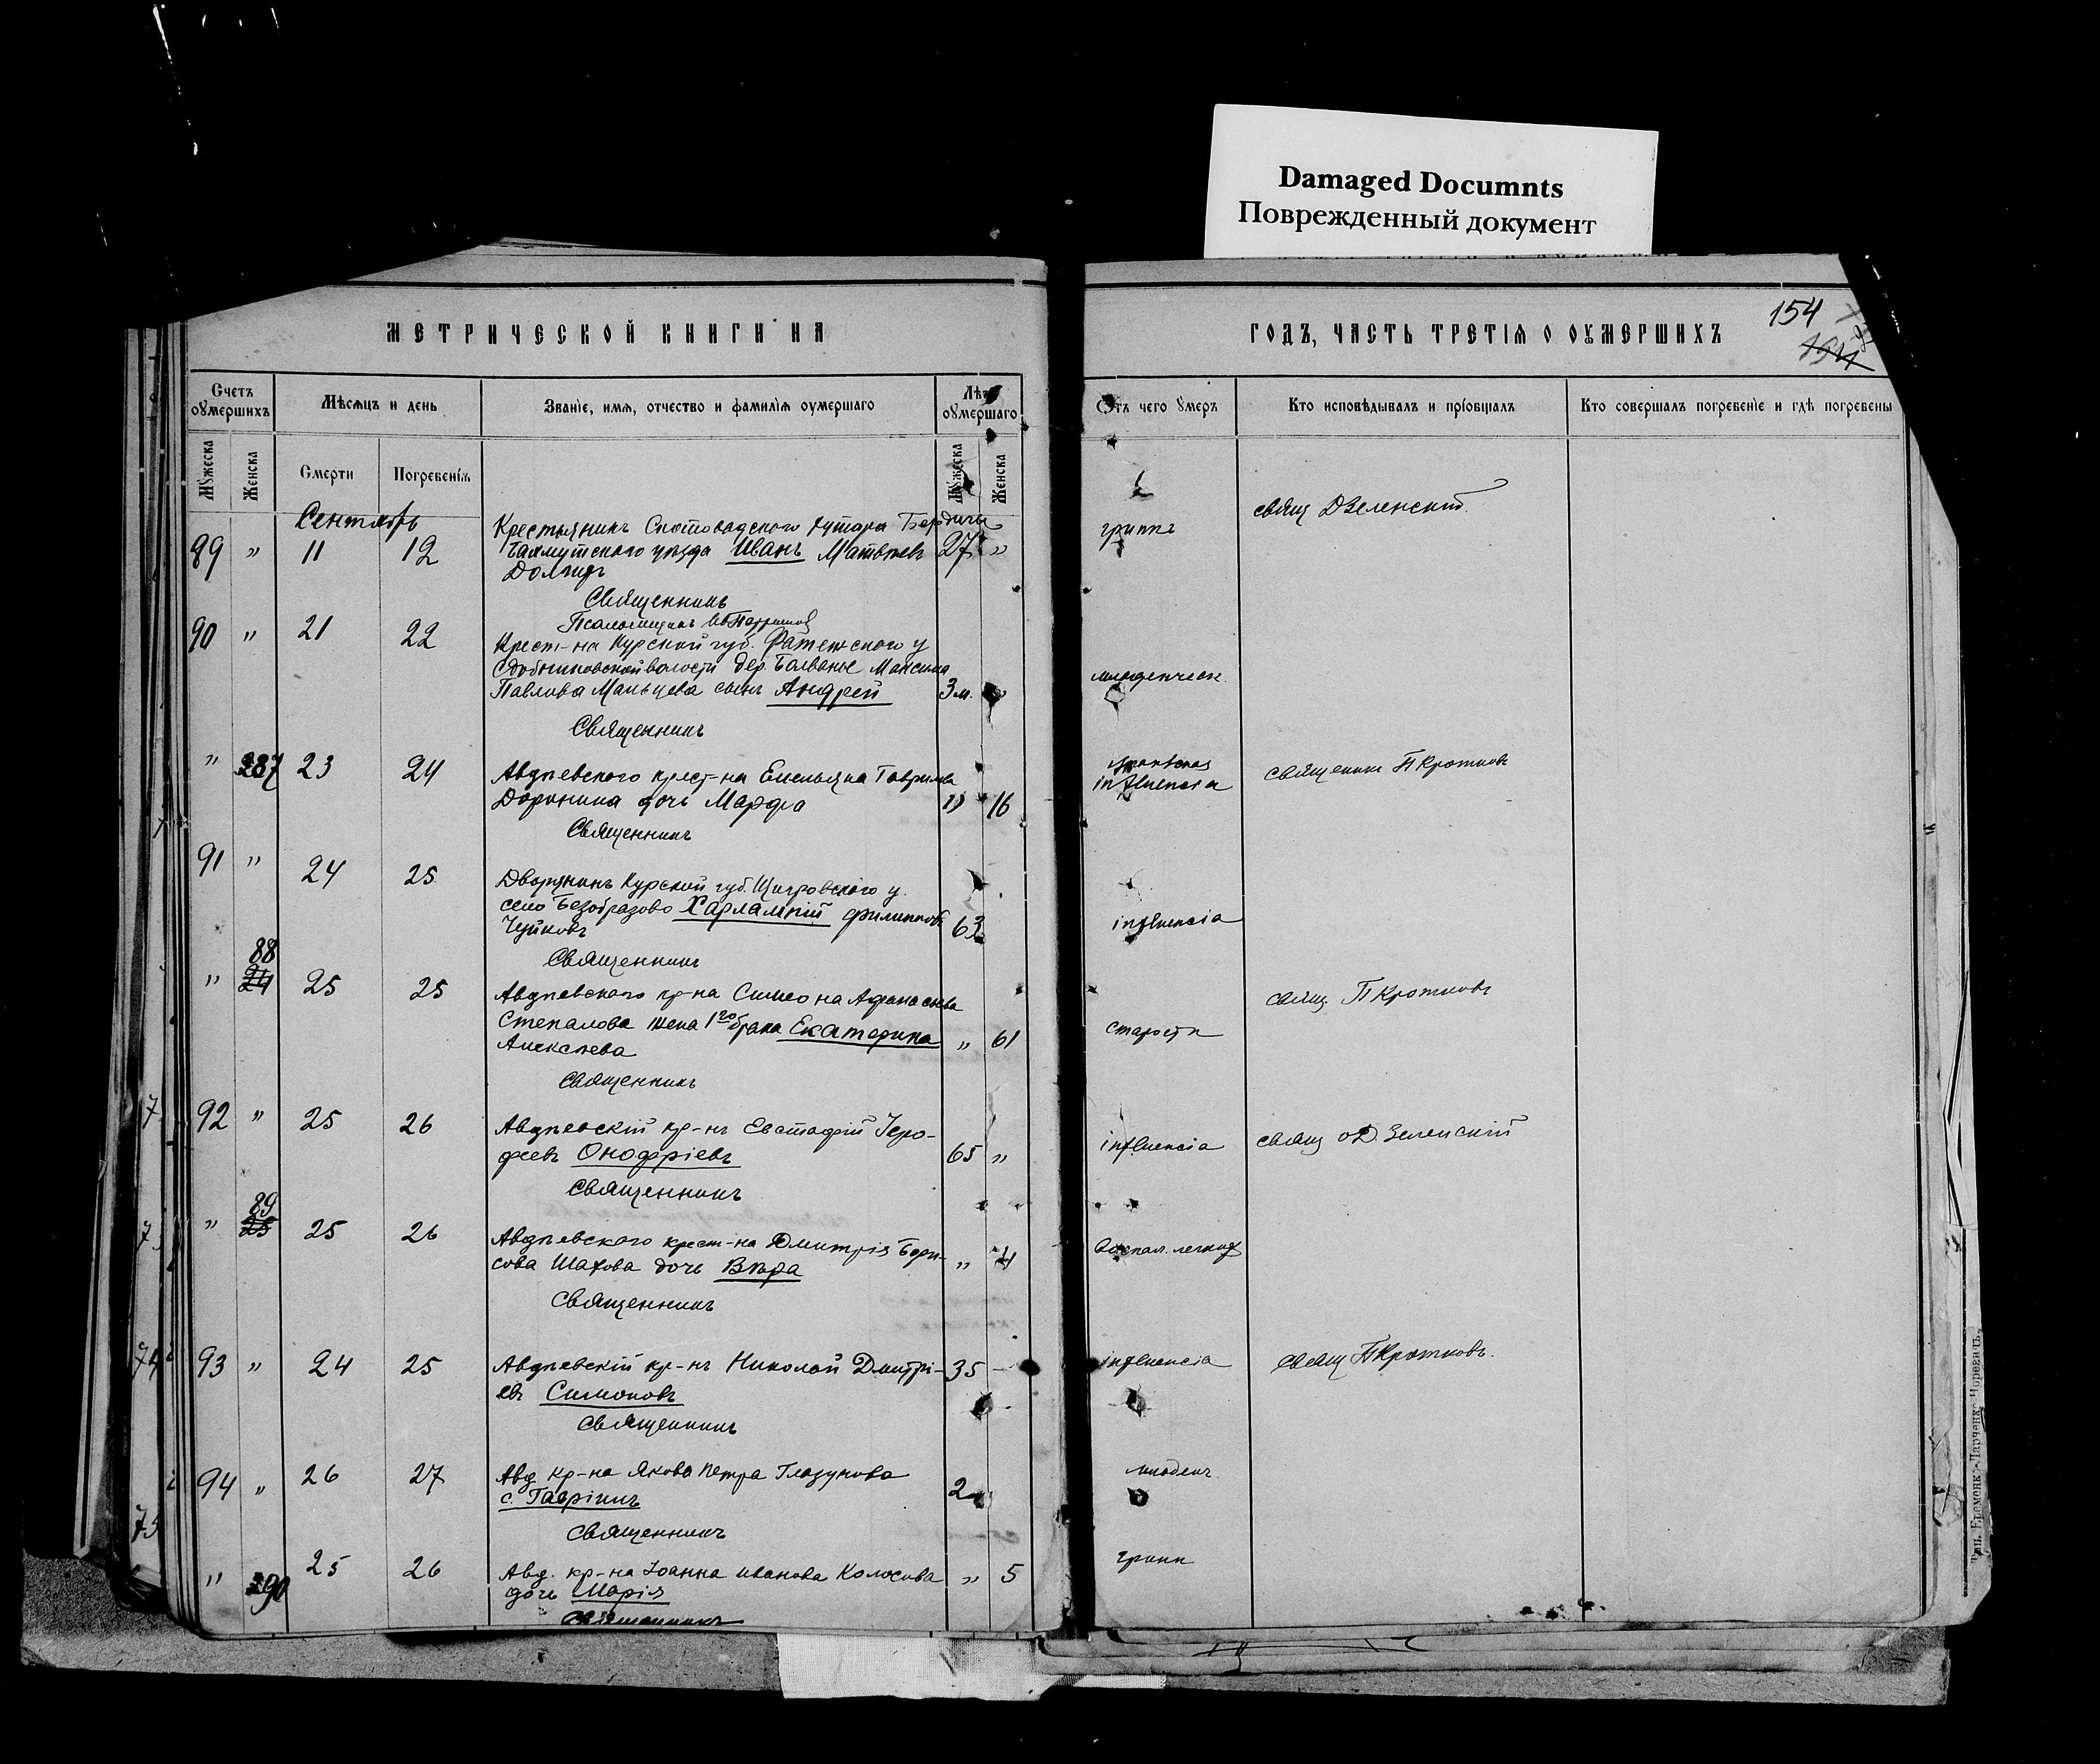 Damaged Documnts
Поврежденный документ
МЕТРИЧЕСКОЙ КНИГИ НА
ГОДЪ, ЧАСТЬ ТРЕТІЯ О ОУМЕРШИХЪ
154
Счетъ оумершихъ
Мѣсяцъ и день
Званіе, имя, отчество и фамилія оумершаго
Лѣта оумершаго
Отъ чего умеръ
Кто исповѣдывалъ и пріобщалъ
Кто совершалъ погребеніе и гдѣ погребены
Мужеска
Женска
Смерти
Погребенія
Мужеска
Женска
Сентябрь
Крестьянинъ Скотоватского хутора
89 " 11 12 Бахмутского уѣзда Иванъ Матвѣевъ 27 " гриппъ свящ Д Зеленскій.
Долгидъ
Священникъ
Псаломщикъ
90 " 21 22
Крест-на Курской губ. Фатежского у
волости дер. Максима
Павлова Мальцева сынъ Андрей 3 м. младенческ.
Священникъ
" 87 23 24 Авдѣевского крест-на Емельяна Гаврилова
influencia священникъ П Кротковъ
Доронина дочь Марфа " 16
Священникъ
91 " 24 25 Дворянинъ Курской губ. Щигровского у.
село Безобразово Харлампій Филипповъ 63 influencia
Чуйковъ
Священникъ
88
" 24 25 25 Авдѣевского кр-на Симеона Афанасьева
свящ. П Кротковъ
Степанова жена 1го брака Екатерина " 61 старости
Алексѣева
Священникъ
92 " 25 26 Авдѣевскій кр-нъ Евстафій Іеро-
феевъ Онофріевъ 65 " influencia свящ о Д. Зеленскій
Священникъ
89
" 25 25 26 Авдѣевского крест-на Дмитрія Бори-
сова Шахова дочь Вѣра " 4 воспал. легкихъ
Священникъ
93 " 24 25 Авдѣевскій кр-нъ Николай Дмитрі- 35 — influencia свящ П Кротковъ.
евъ Симоновъ
Священникъ
94 " 26 27 Авд кр-на Якова Петра Глазунова
с. Гавріилъ 2 младенч.
Священникъ
" 90 25 26 Авд. кр-на Іоанна Иванова Колосова " 5 грипп
дочь Марія
Священникъ